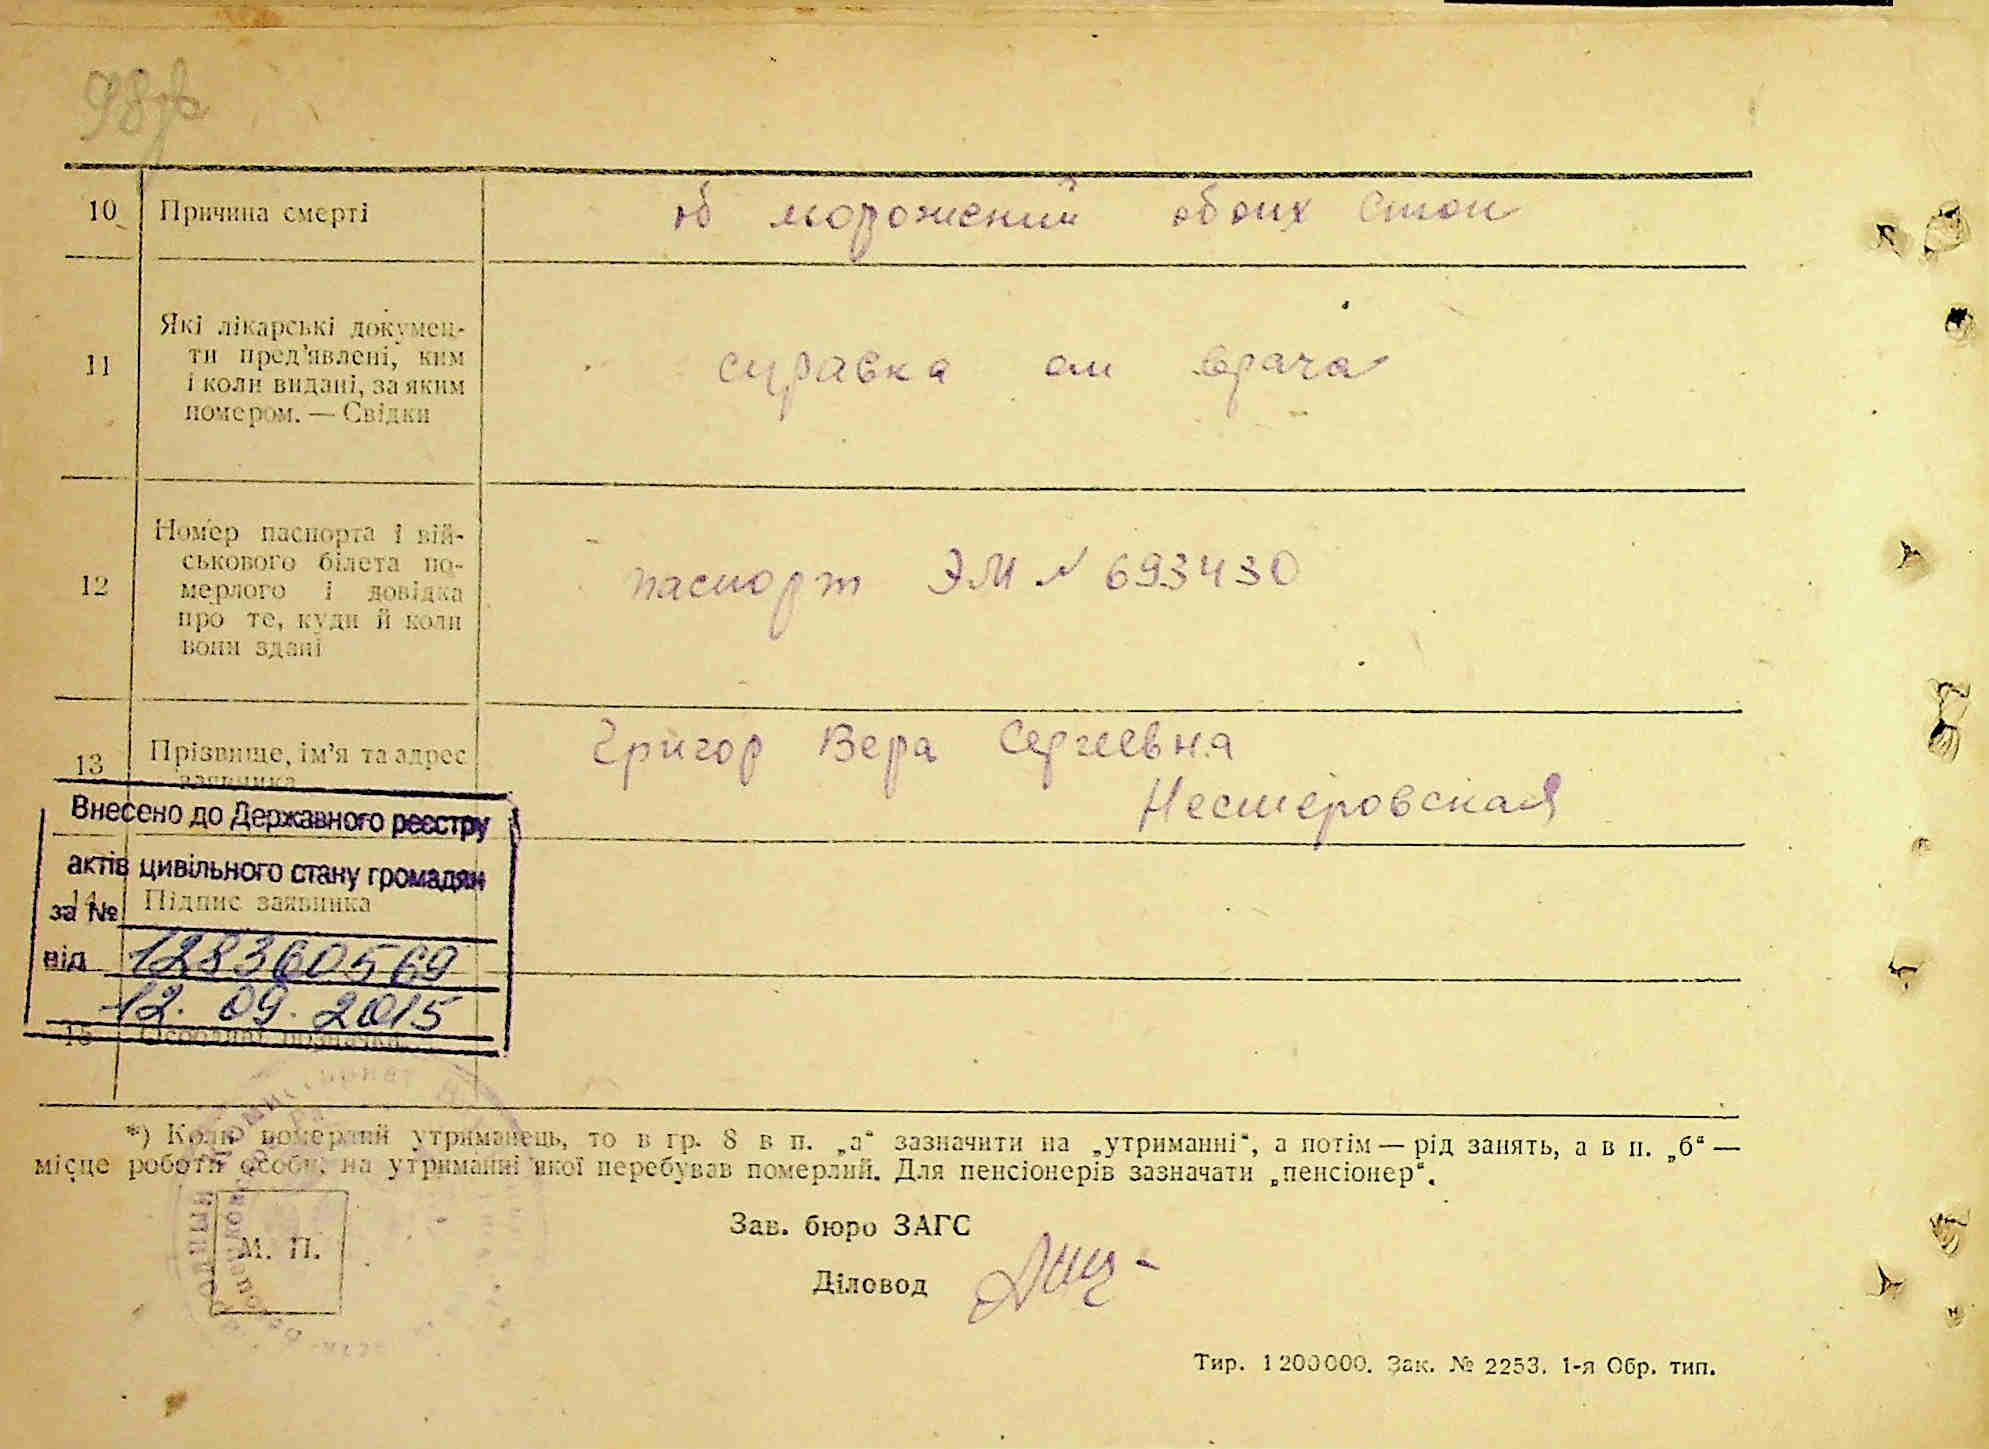 98
10 Причина смерті об морожений обоих стоп
11 Які лікарські докумен-
ти пред'явлені, ким
і коли видані, за яким
номером. — Свідки
справка от врача
12 Номер паспорта і вій-
ськового білета по-
мерлого і довідка
про те, куди й коли
вони здані
паспорт ЭМ № 693430
13 Прізвище, ім'я та адрес
заявника
Григор Вера Сергеевна
Нестеровская
Внесено до Державного реєстру
актів цивільного стану громадян
14 Підпис заявника
за №
128360569
від
12.09.2015
15 Особливі позначки
*) Коли померлий утриманець, то в гр. 8 в п. „а“ зазначити на „утриманні“, а потім — рід занять, а в п. „б“ —
місце роботи особи, на утриманні якої перебував померлий. Для пенсіонерів зазначати „пенсіонер“.
М. П.
Зав. бюро ЗАГС
Діловод
Тир. 1 200 000. Зак. № 2253. 1-я Обр. тип.